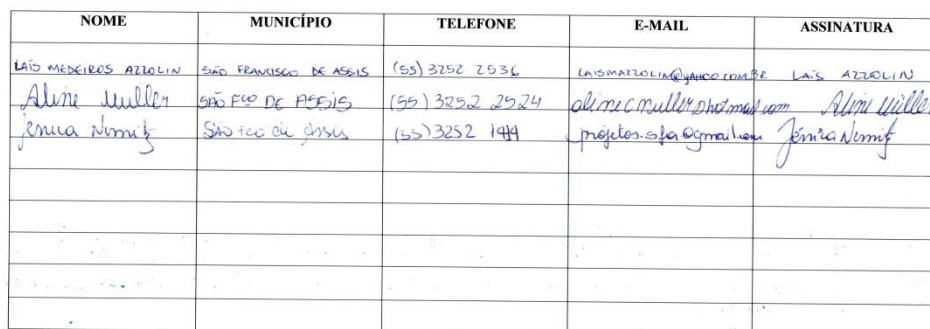 NOME MUNICÍPIO TELEFONE E-MAIL ASSINATURA
LAÍS MEDEIROS AZZOLIN SÃO FRANCISCO DE ASSIS (55) 3252 2536 LAISMAZZOLIN@YAHOO.COM.BR LAÍS AZZOLIN
Aline Muller SÃO FCO DE ASSIS (55) 3252 2524 alinecmuller@hotmail.com Aline Müller
Jenica Nemitz São Fco de Assis (55) 3252 projetos.sfa@gmail.com Nemitz